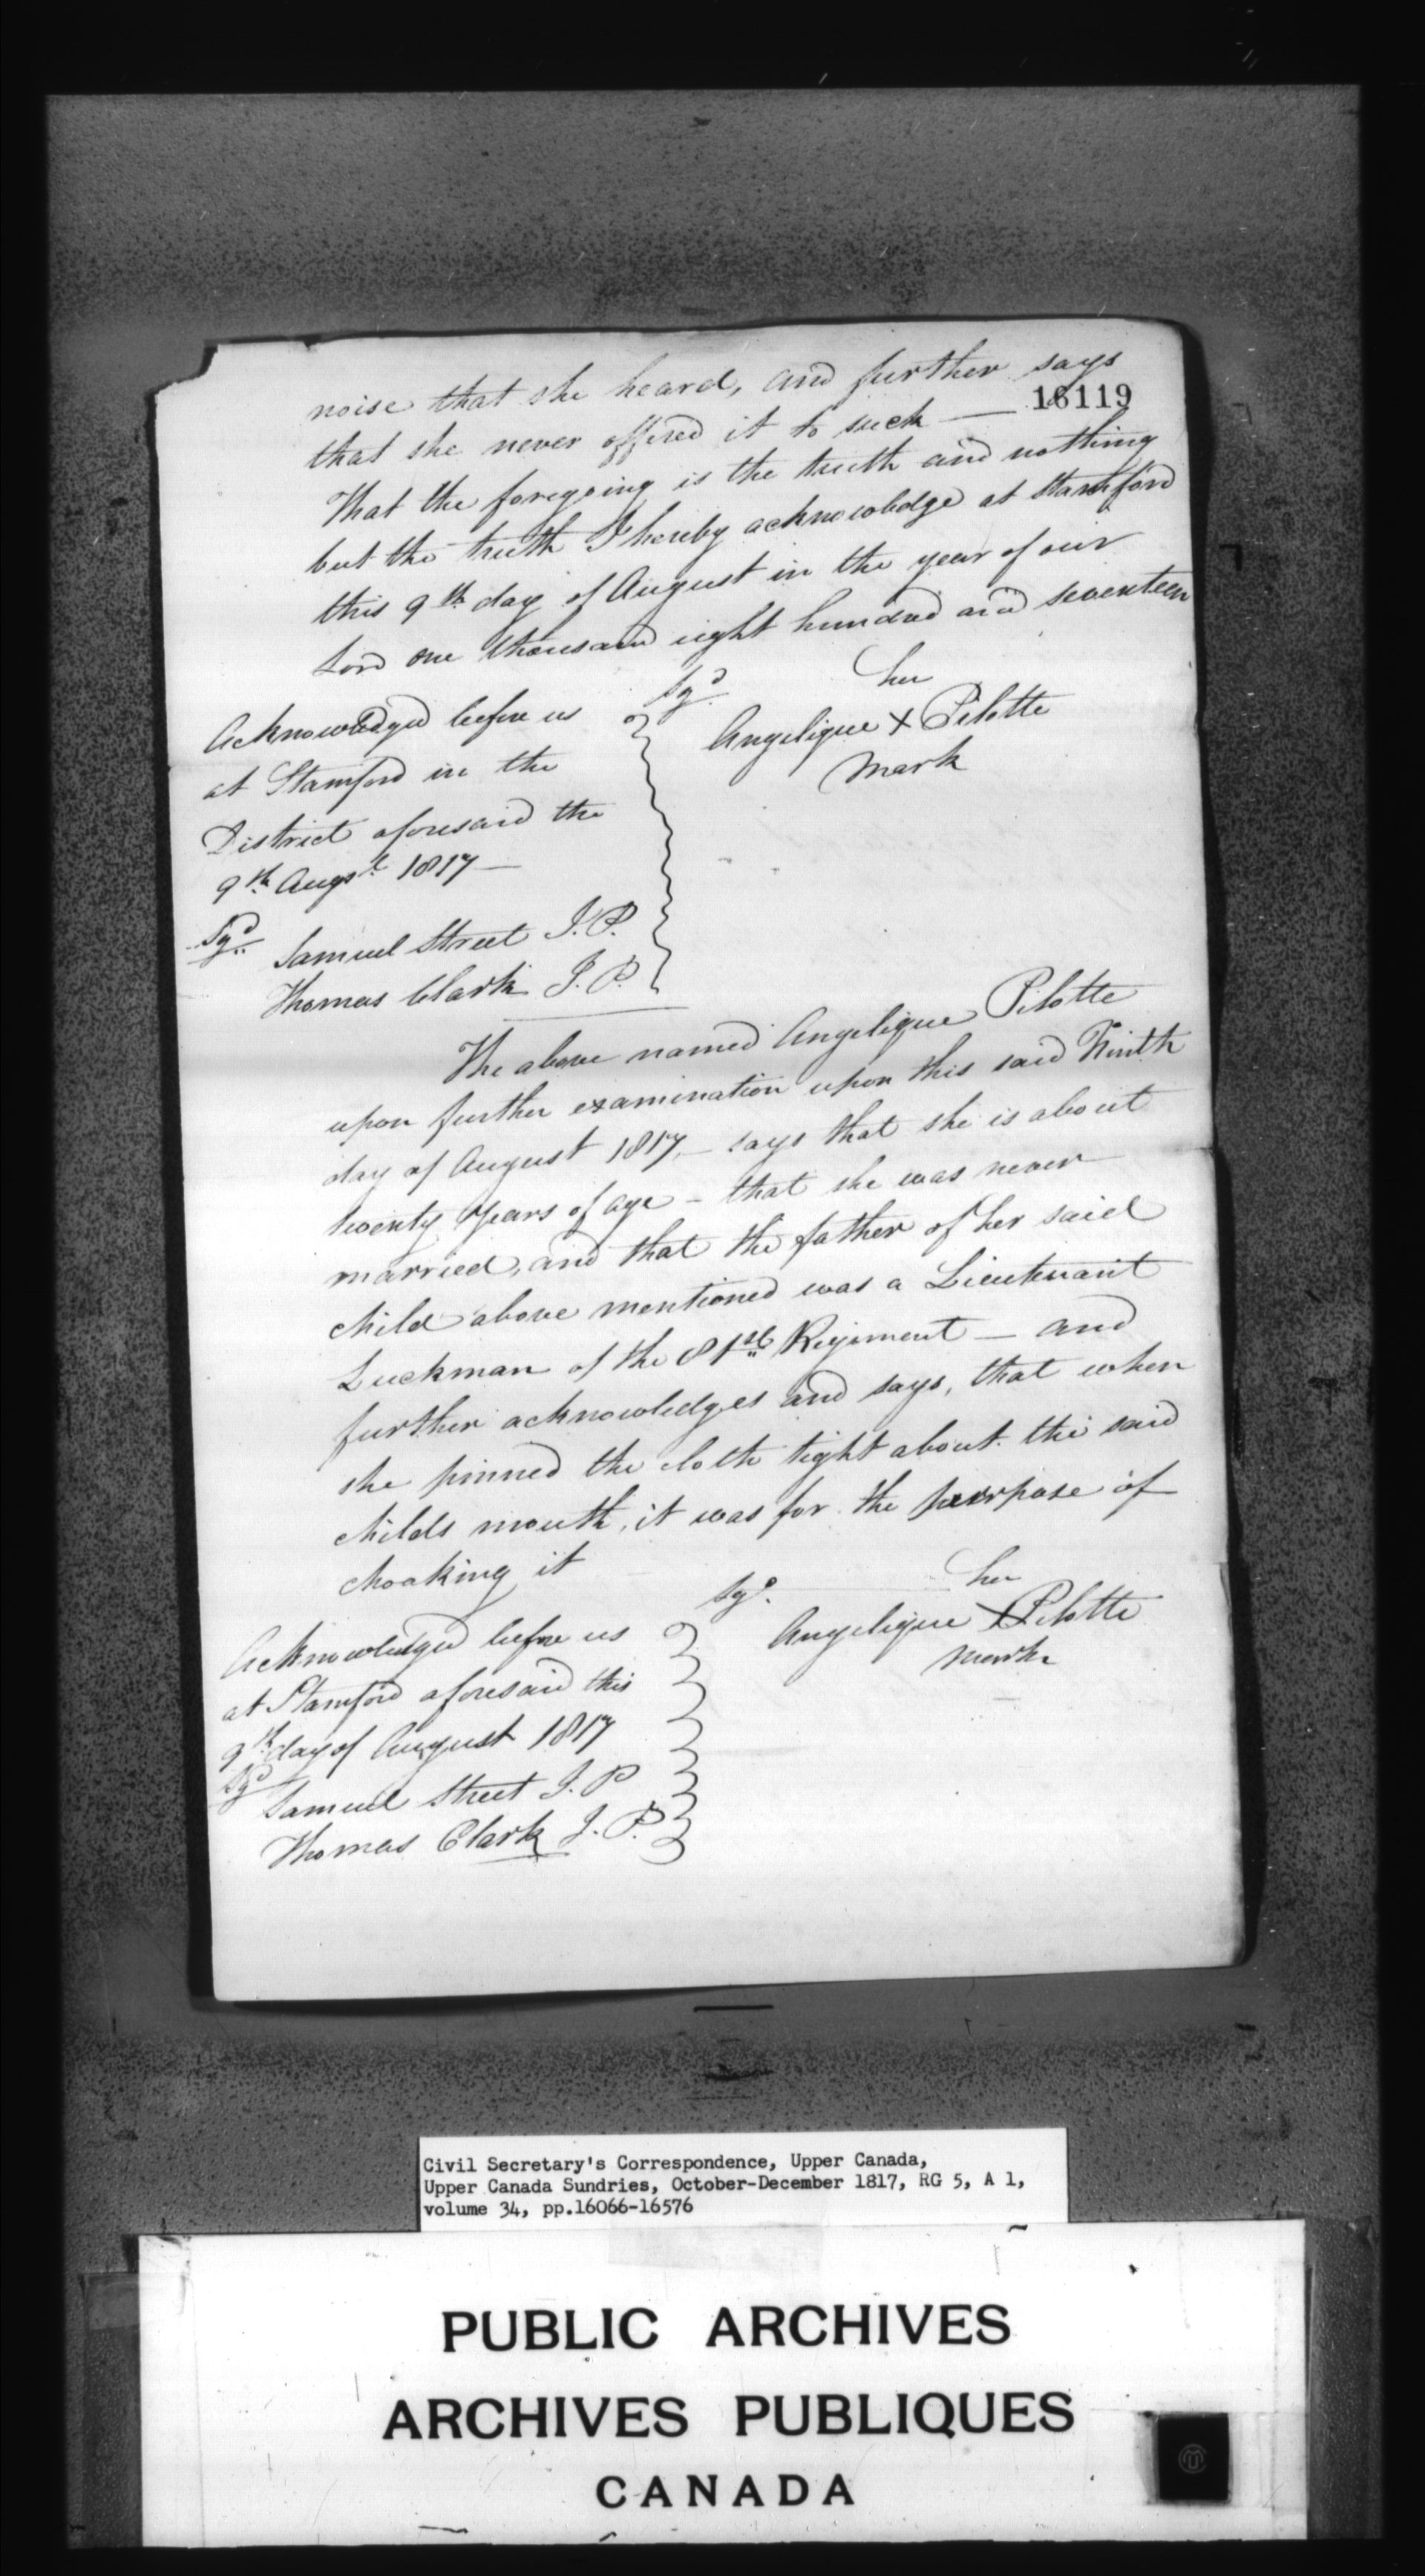 noise that she heard, and further says
16119
that she never offered it to suck —
That the foregoing is the truth and nothing
but the truth I hereby acknowledge at Stamford
this 9th day of August in the year of our
Lord one thousand eight hundred and seventeen
Sgd her
Angelique X Pilotte
mark
Acknowledged before us
at Stamford in the
District aforesaid the
9th Augst 1817 —
Sgd Samuel Street J.P.
Thomas Clark J.P.
The above named Angelique Pilotte
upon further examination upon this said Ninth
day of August 1817, — says that she is about
twenty years of age – that she was never
married, and that the father of her said
child above mentioned was a Lieutenant
Luckman of the 81st Regiment — and
further acknowledges and says, that when
she pinned the cloth tight about the said
childs mouth, it was for the purpose of
choaking it
Sgd her
Angelique X Pilotte
mark
Acknowledged before us
at Stamford aforesaid this
9th day of August 1817
Sgd
Samuel Street J.P
Thomas Clark J.P.
Civil Secretary's Correspondence, Upper Canada,
Upper Canada Sundries, October-December 1817, RG 5, A 1,
volume 34, pp.16066-16576
PUBLIC ARCHIVES
ARCHIVES PUBLIQUES
CANADA